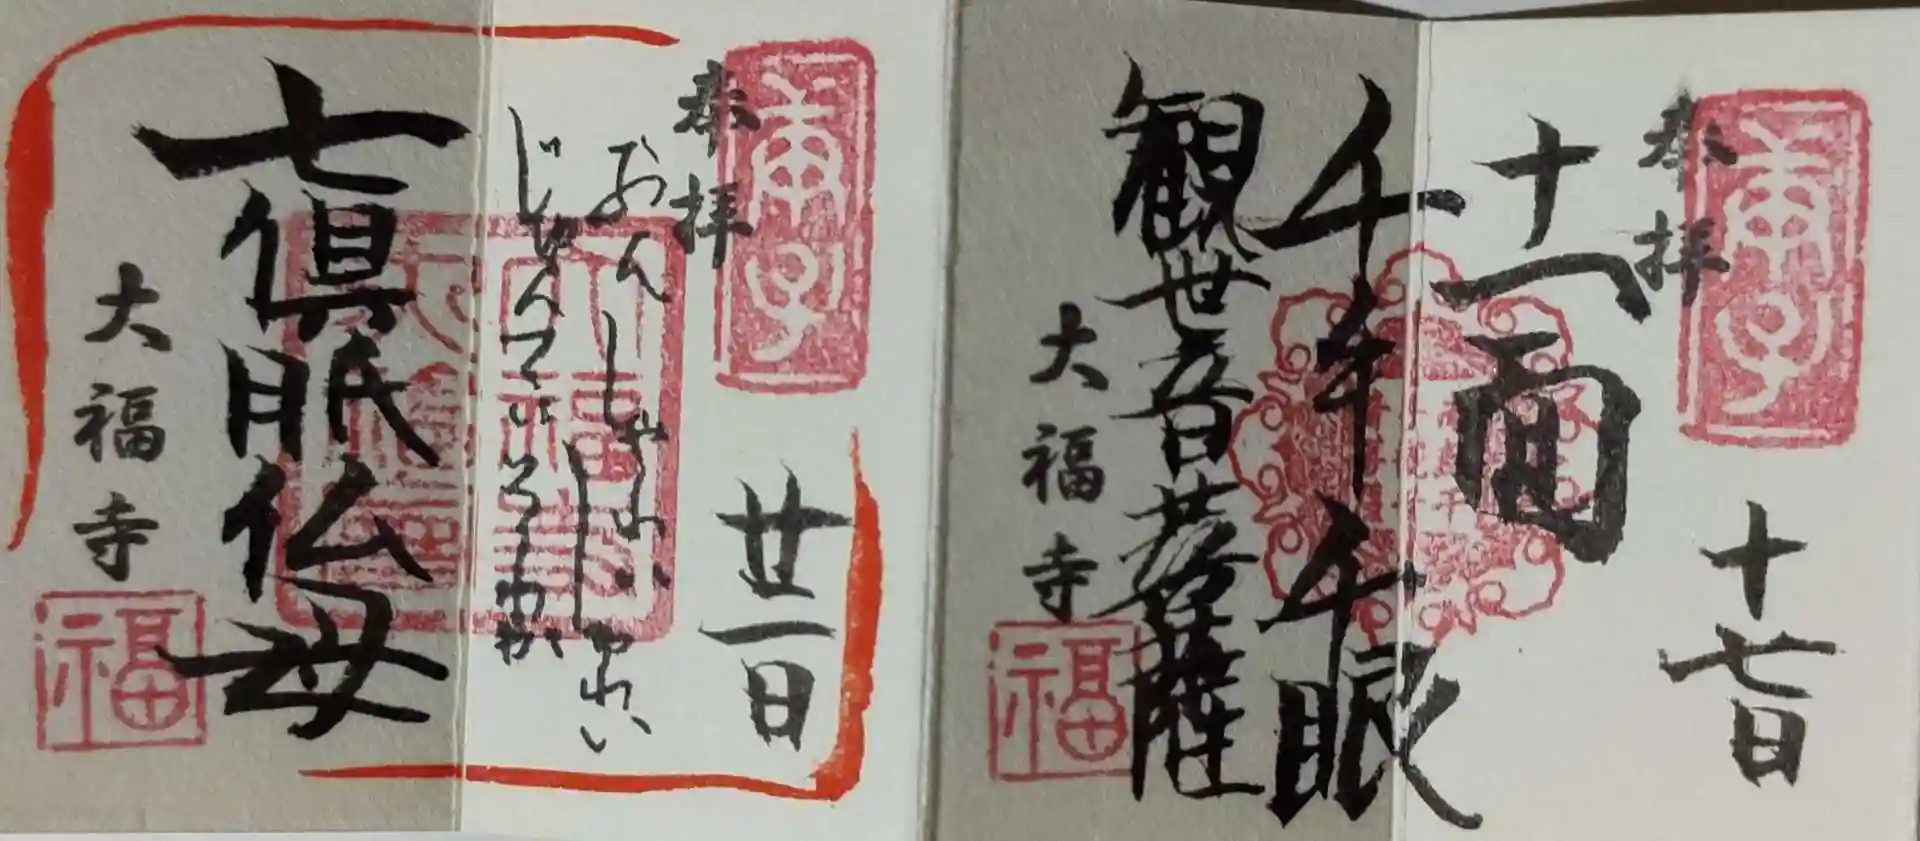 奉拝
庚子
十七日
十一面
千手千眼
観世音菩薩
大福寺
福
奉拝
庚子
廿一日
おん しゃれい
そわか
七倶胝仏母
大福寺
大福寺
福